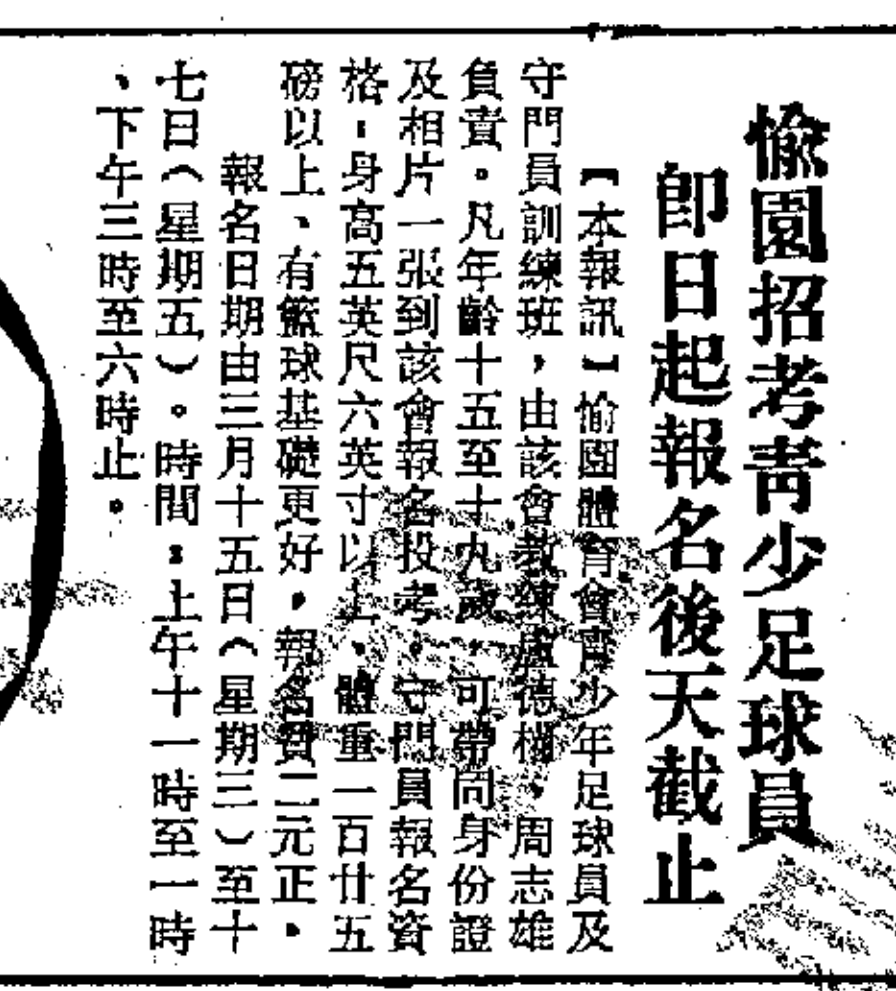 愉園招考青少足球員
即日起報名後天截止
【本報訊】愉園體育會青少年足球員及
守門員訓練班，由該會教練盧德權、周志雄
負責。凡年齡十五至十九歲，可帶同身份證
及相片一張到該會報名投考。守門員報名資
格：身高五英尺六英寸以上、體重一百廿五
磅以上、有籃球基礎更好，報名費二元正。
報名日期由三月十五日（星期三）至十
七日（星期五）。時間：上午十一時至一時
、下午三時至六時止。